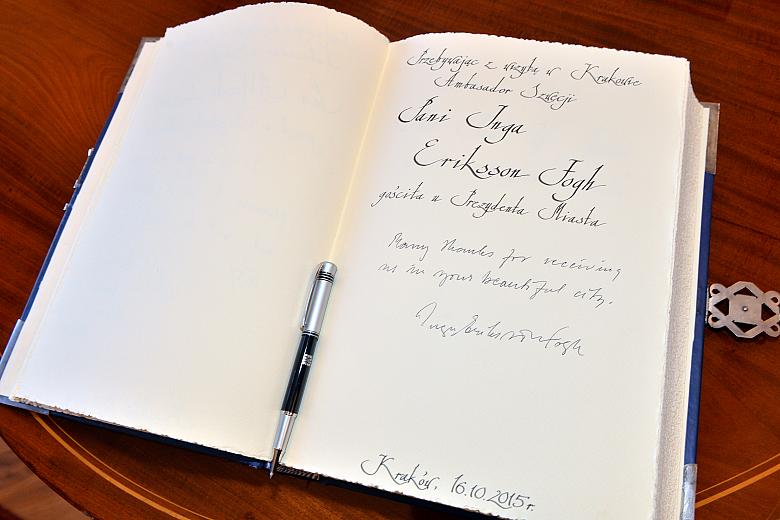 Przebywając z wizytą w Krakowie
Ambasador Szwecji
Pani Inga
Eriksson Fogh
gościła u Prezydenta Miasta
Many thanks for receiving
us in your beautiful city.
Inga Eriksson Fogh
Kraków, 16.10.2015r.